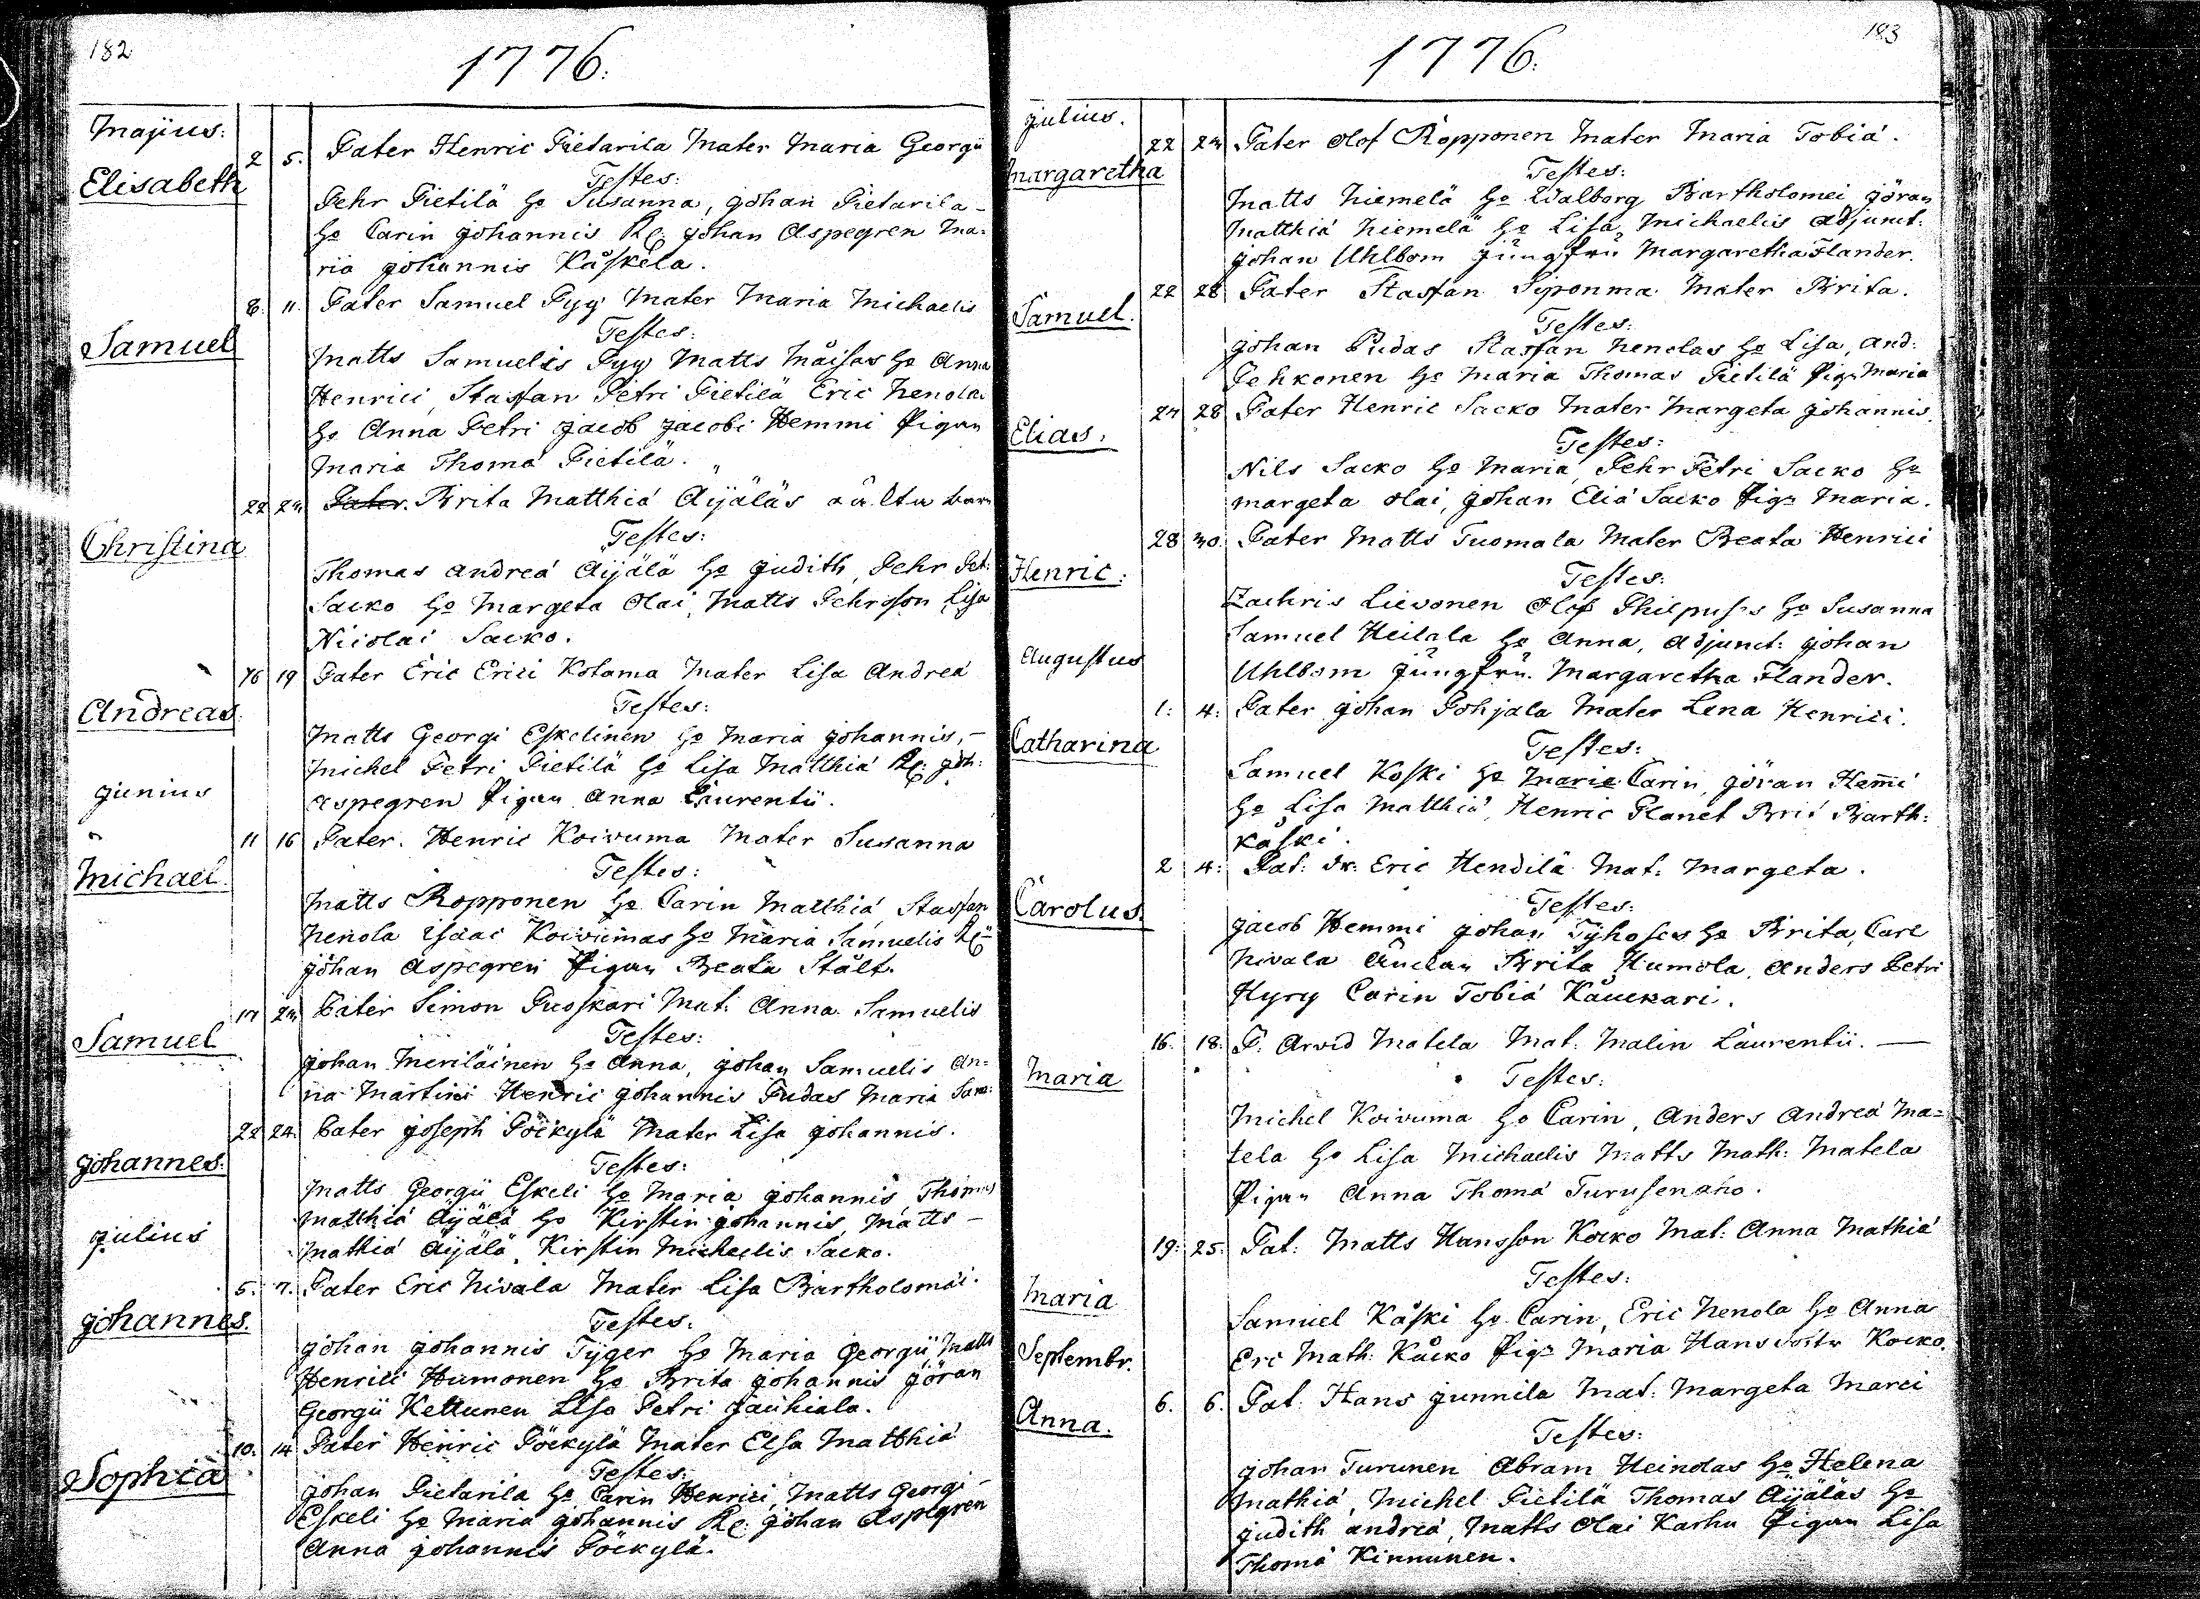 182
1776.
Majus:
Elisabeth
2 5. Pater Henric Pietarila Mater Maria Georgii
Testes:
Pehr Pietilä Ho Susanna, Johan Pietarila -
Ho Carin Johannis Johan Aspegren Ma-
ria Johannis Kåskela.
Samuel
8. 11. Pater Samuel Pyy Mater Maria Michaelis
Testes:
Matts Samuelis Pyy Matts Måisas Ho Anna
Henrici, Staffan Petri Pietilä Eric Nenola
Ho Anna Petri Jacob Jacobi Hemmi Pigan
Maria Thomæ Pietilä.
Christina
22 23 Pater. Brita Matthiæ Äijäläs oälta barn
Testes:
Thomas Andreæ Äijälä Ho Judith, Pehr Pet:
Sacko Ho Margeta Olai, Matts Pehrsson Lisa
Nicolai Sacko.
Andreas
16 19 Pater Eric Erici Kotama Mater Lisa Andreæ
Testes:
Matts Georgi Eskelinen Ho Maria Johannis, -
Michel Petri Pietilä Ho Lisa Matthiæ Joh:
Aspegren Pigan Anna Laurentii.
Junius
Michael
11 16 Pater. Henric Koivuma Mater Susanna
Testes:
Matts Ropponen Ho Carin Matthiæ Staffan
Nenola Isaac Koivumas Ho Maria Samuelis
Johan Aspegren Pigan Beata Stålt.
Samuel
17 23 Pater Simon Puoskari Mat: Anna Samuelis
Testes:
Johan Meriläinen Ho Anna, Johan Samuelis An-
na Martini Henric Johannis Pudas Maria Sam:
Johannes.
22 24. Pater Joseph Pöckylä Mater Lisa Johannis.
Testes:
Matts Georgii Eskeli Ho Maria Johannis Thomas
Matthiæ Äijälä Ho Kirstin Johannis, Matts -
Mathiæ Äijälä, Kirstin Michaelis Sacko.
Julius
Johannes.
5. 7. Pater Eric Nivala Mater Lisa Bartholomæi.
Testes.
Johan Johannis Tyger Ho Maria Georgii Matts
Henrici Humonen Ho Brita Johannis Göran
Georgii Kettunen Lisa Petri Jauhiala.
Sophia
10. 14 Pater Henric Pöckylä Mater Elsa Matthiæ
Testes:
Johan Pietarila Ho Carin Henrici, Matts Georgi -
Eskeli Ho Maria Johannis Johan Aspegren
Anna Johannis Pöckylä.
183
1776.
Julius.
Margaretha
22 23 Pater Olof Ropponen Mater Maria Tobiæ.
Testes:
Matts Niemelä Ho Walborg Bartholomei Göran
Matthiæ Niemelä Ho Lisa Michaelis Adjunct:
Johan Uhlbom Jungfru Margaretha Flander.
Samuel.
22 28 Pater Staffan Siponma Mater Brita.
Testes:
Johan Pudas Staffan Nenolas Ho Lisa, And:
Pehkonen Ho Maria Thomas Pietilä Pign Maria
Elias.
27 28 Pater Henric Sacko Mater Margeta Johannis.
Testes:
Nils Sacko Ho Maria, Pehr Petri Sacko Ho
Margeta Olai, Johan Eliæ Sacko Pign Maria.
Henric:
28 30. Pater Matts Tuomala Mater Beata Henrici
Testes:
Zachris Lievonen Olof Philpuses Ho Susanna
Samuel Heilala Ho Anna, Adjunct: Johan
Uhlbom Jungfru. Margaretha Flander.
Augustus
Catharina
1: 4: Pater Johan Pohjala Mater Lena Henrici.
Testes:
Samuel Koski Ho Maria Carin, Göran Hemmi
Ho Lisa Matthiæ, Henric Planet Brit Barth:
Kåski.
Carolus.
2 4: Pat: Dr. Eric Hendilä Mat: Margeta.
Testes:
Jacob Hemmi Johan Tyhoses Ho Brita, Carl
Nivala Änckan Brita Humola, Anders Petri
Hyry Carin Tobiæ Kauckari.
Maria
16. 18: P. Arvid Matela Mat: Malin Laurentii. —
Testes:
Michel Koivuma Ho Carin, Anders Andreæ Ma=
tela Ho Lisa Michaelis Matts Math: Matela
Pigan Anna Thomæ Turusenaho.
Maria
19: 25: Pat: Matts Hansson Kocko Mat: Anna Mathiæ
Testes:
Samuel Kåski Ho Carin, Eric Nenola Ho Anna
Eric Math: Kåcko Pign Maria Hans dotter Kocko.
Septembr.
Anna.
6. 6. Pat: Hans Junnila Mat: Margeta Marci
Testes:
Johan Turunen Abram Heindas Ho Helena
Mathiæ, Michel Pietilä Thomas Äijäläs Ho
Judith Andreæ, Matts Olai Karhu Pigan Lisa
Thomæ Kinnunen.